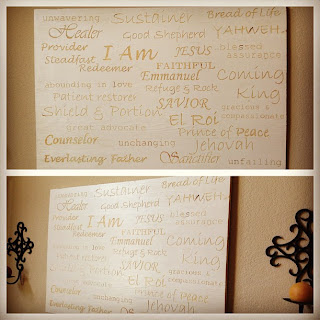 unwavering Sustainer Bread of Life
Healer Good Shepherd YAHWEH
Provider I Am JESUS blessed
Steadfast assurance
Redeemer FAITHFUL
Emmanuel Coming
abounding in love Refuge & Rock King
Patient restorer SAVIOR gracious &
Shield & Portion compassionate
great advocate El Roi
Prince of Peace
Counselor unchanging Jehovah
Everlasting Father unfailing
Sustainer Bread of Life
Healer Good Shepherd YAHWEH
Provider I Am JESUS blessed
Steadfast assurance
Redeemer FAITHFUL
Emmanuel Coming
abounding in love Refuge & Rock King
Patient restorer SAVIOR gracious &
Shield & Portion compassionate
great advocate El Roi
Prince of Peace
Counselor unchanging Jehovah
Everlasting Father